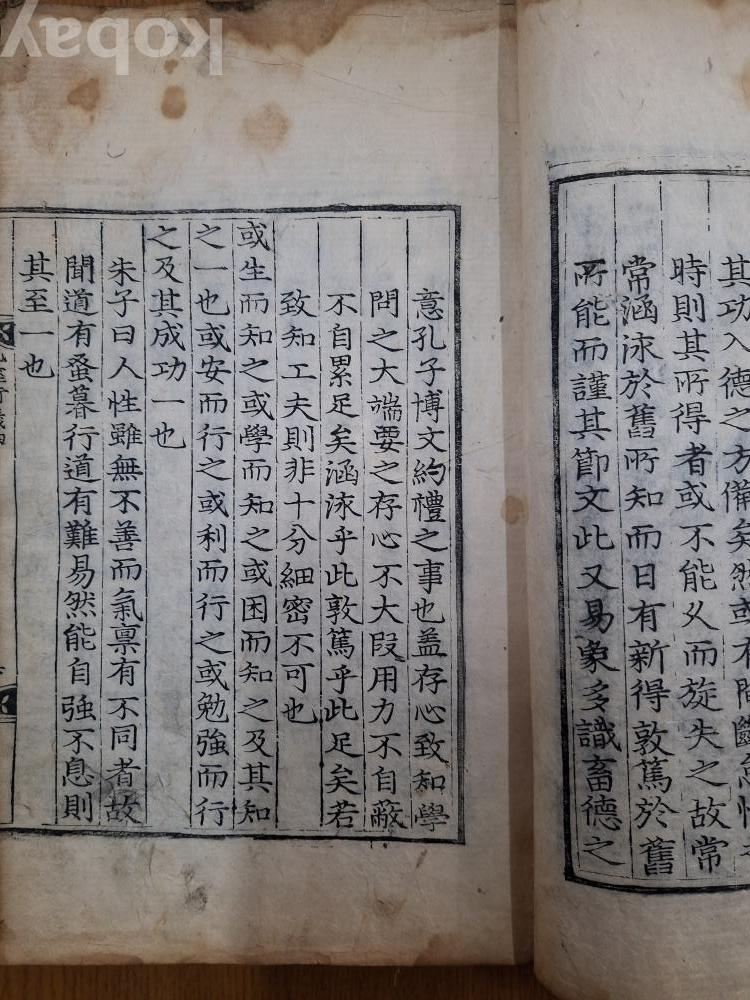 kobay
其功入德之方備矣然或有間斷
時則其所得者或不能久而旋失之故常
常涵泳於舊所知而日有新得敦篤於舊
所能而謹其節文此又易象多識畜德之
意孔子博文約禮之事也蓋存心致知學
問之大端要之存心不大段用力不自蔽
不自累足矣涵泳乎此敦篤乎此足矣若
致知工夫則非十分細密不可也
或生而知之或學而知之或困而知之及其知
之一也或安而行之或利而行之或勉強而行
之及其成功一也
朱子曰人性雖無不善而氣禀有不同者故
聞道有蚤暮行道有難易然能自強不息則
其至一也